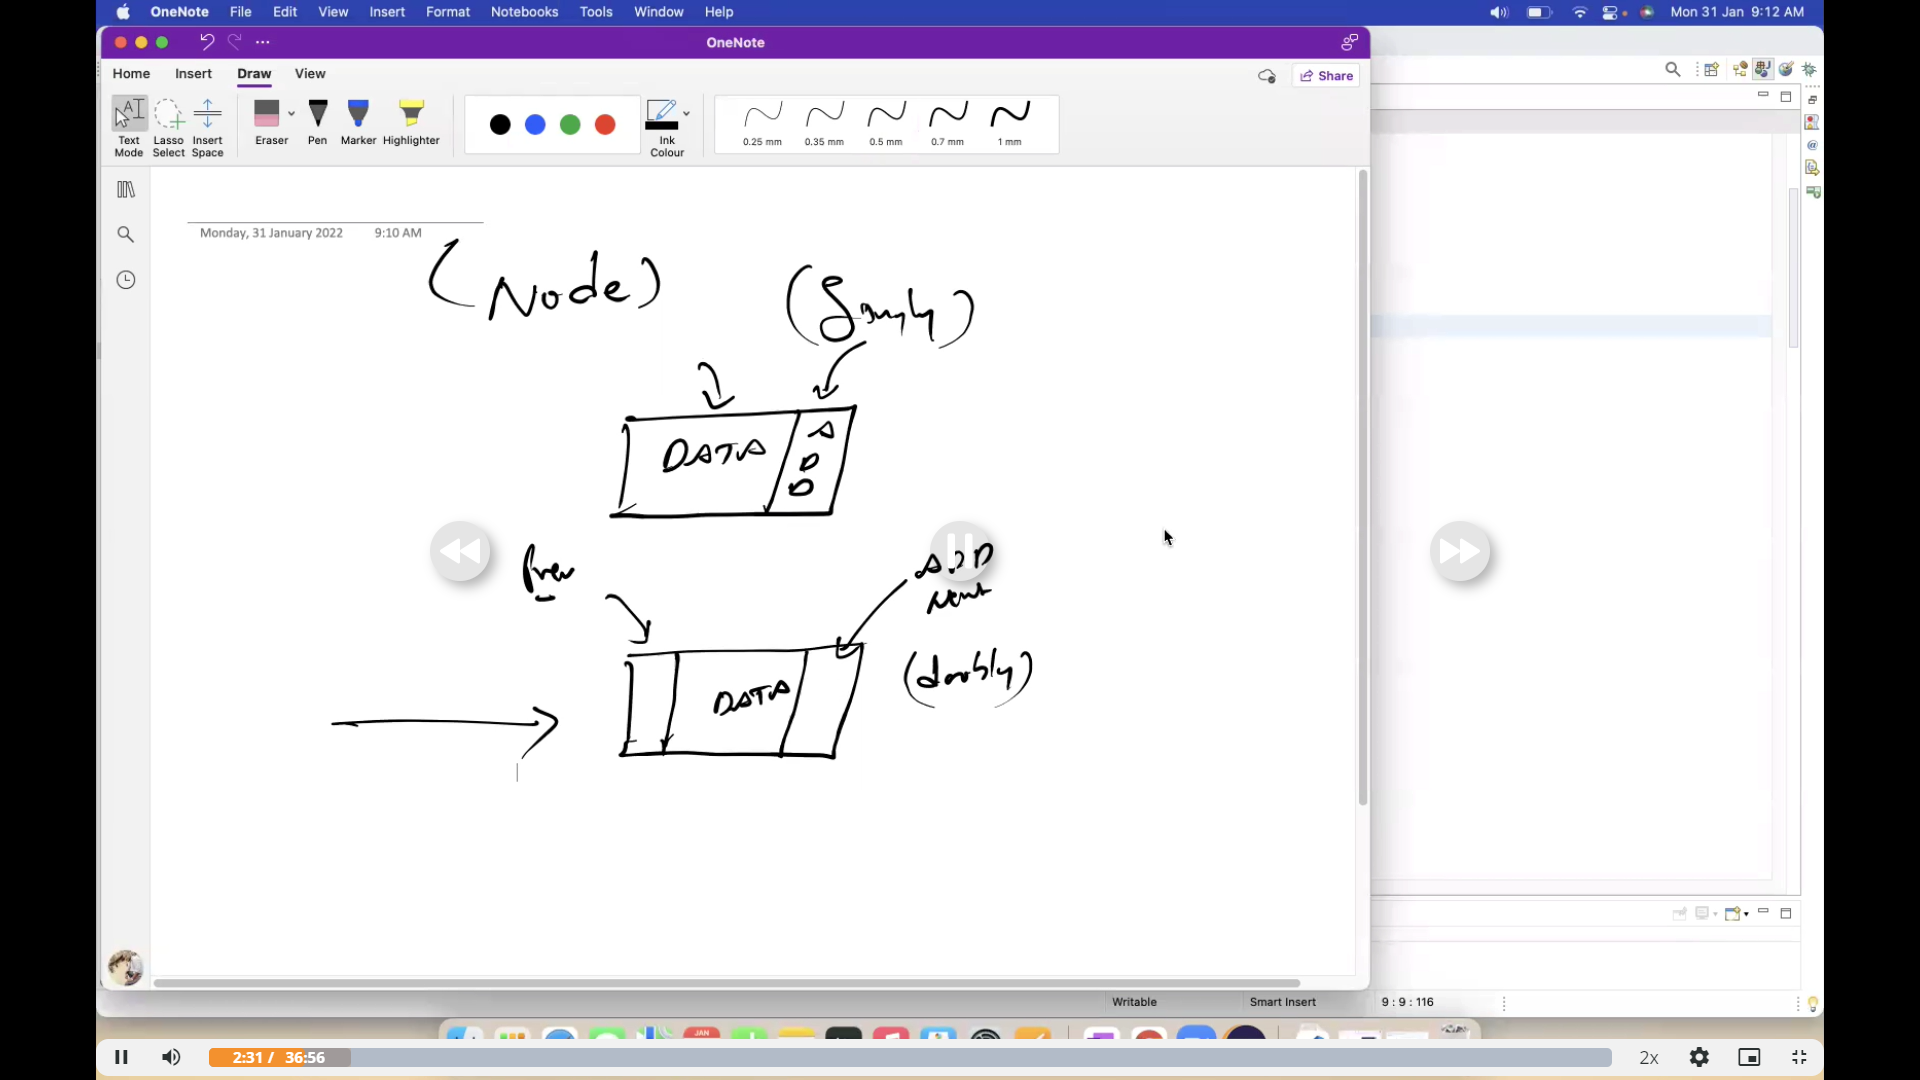 OneNote File Edit View Insert Format Notebooks Tools Window Help Mon 31 Jan 9:12 AM
OneNote
Home Insert Draw View Share
Text Mode
Lasso Select
Insert Space
Eraser
Pen
Marker
Highlighter
Ink Colour
0.25 mm 0.35 mm 0.5 mm 0.7 mm 1 mm
Monday, 31 January 2022 9:10 AM
(Node)
(Singly)
DATA ADD
Prev
ADD
Next
DATA
(doubly)
Writable Smart Insert 9 : 9 : 116
JAN
2:31 / 36:56 2x